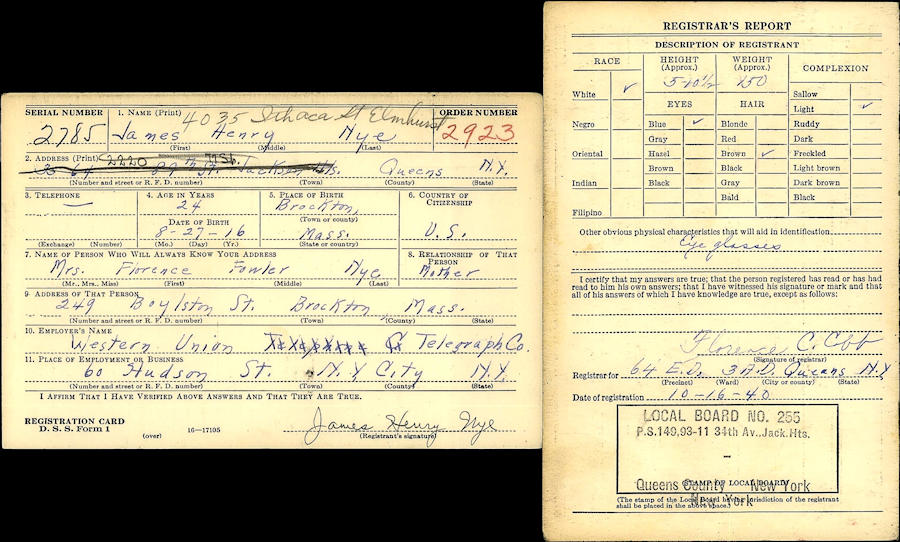 SERIAL NUMBER
1. NAME (Print)
4035 Ithaca St Elmhurst
ORDER NUMBER
2785
James Henry Nye
2923
(First) (Middle) (Last)
2. ADDRESS (Print) 2220 79 St.
3564 89th St. Jackson Hts. Queens N.Y.
(Number and street or R. F. D. number) (Town) (County) (State)
3. TELEPHONE
4. AGE IN YEARS
5. PLACE OF BIRTH
6. COUNTRY OF CITIZENSHIP
—
24
Brockton,
(Town or county)
DATE OF BIRTH
8-27-16
Mass.
U.S.
(Exchange) (Number)
(Mo.) (Day) (Yr.)
(State or country)
7. NAME OF PERSON WHO WILL ALWAYS KNOW YOUR ADDRESS
8. RELATIONSHIP OF THAT PERSON
Mrs. Florence Fowler Nye
Mother
(Mr., Mrs., Miss) (First) (Middle) (Last)
9. ADDRESS OF THAT PERSON
249 Boylston St. Brockton, Mass.
(Number and street or R. F. D. number) (Town) (County) (State)
10. EMPLOYER'S NAME
Western Union Telegraph Co.
11. PLACE OF EMPLOYMENT OR BUSINESS
60 Hudson St. N.Y. City N.Y.
(Number and street or R. F. D. number) (Town) (County) (State)
I AFFIRM THAT I HAVE VERIFIED ABOVE ANSWERS AND THAT THEY ARE TRUE.
REGISTRATION CARD
D. S. S. Form 1
(over)
16—17105
James Henry Nye
(Registrant's signature)
REGISTRAR'S REPORT
DESCRIPTION OF REGISTRANT
RACE
HEIGHT (Approx.)
WEIGHT (Approx.)
COMPLEXION
White ✓
5-10½
150
Sallow
EYES
HAIR
Light ✓
Negro
Blue ✓
Blonde
Ruddy
Gray
Red
Dark
Oriental
Hazel
Brown ✓
Freckled
Brown
Black
Light brown
Indian
Black
Gray
Dark brown
Bald
Black
Filipino
Other obvious physical characteristics that will aid in identification
Eye glasses
I certify that my answers are true; that the person registered has read or has had
read to him his own answers; that I have witnessed his signature or mark and that
all of his answers of which I have knowledge are true, except as follows:
Florence C. Cobb
(Signature of registrar)
Registrar for 64 E.D. 3 A.D. Queens N.Y
(Precinct) (Ward) (City or county) (State)
Date of registration 10-16-40
LOCAL BOARD NO. 255
P.S.149,93-11 34th Av..Jack.Hts.
–
Queens County New York
STAMP OF LOCAL BOARD
New York
(The stamp of the Local Board having jurisdiction of the registrant
shall be placed in the above space.)